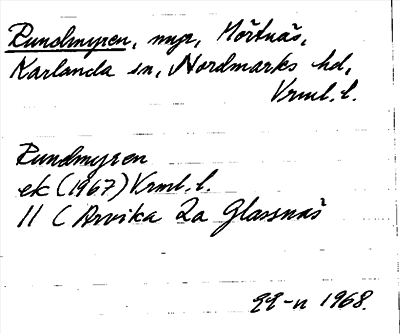 Rundmyren, myr, Mörtnäs,
Karlanda sn, Nordmarks hd,
Vrml. l.
Rundmyren
ek (1967) Vrml. l.
11 C Arvika 2a Glassnäs
1968.